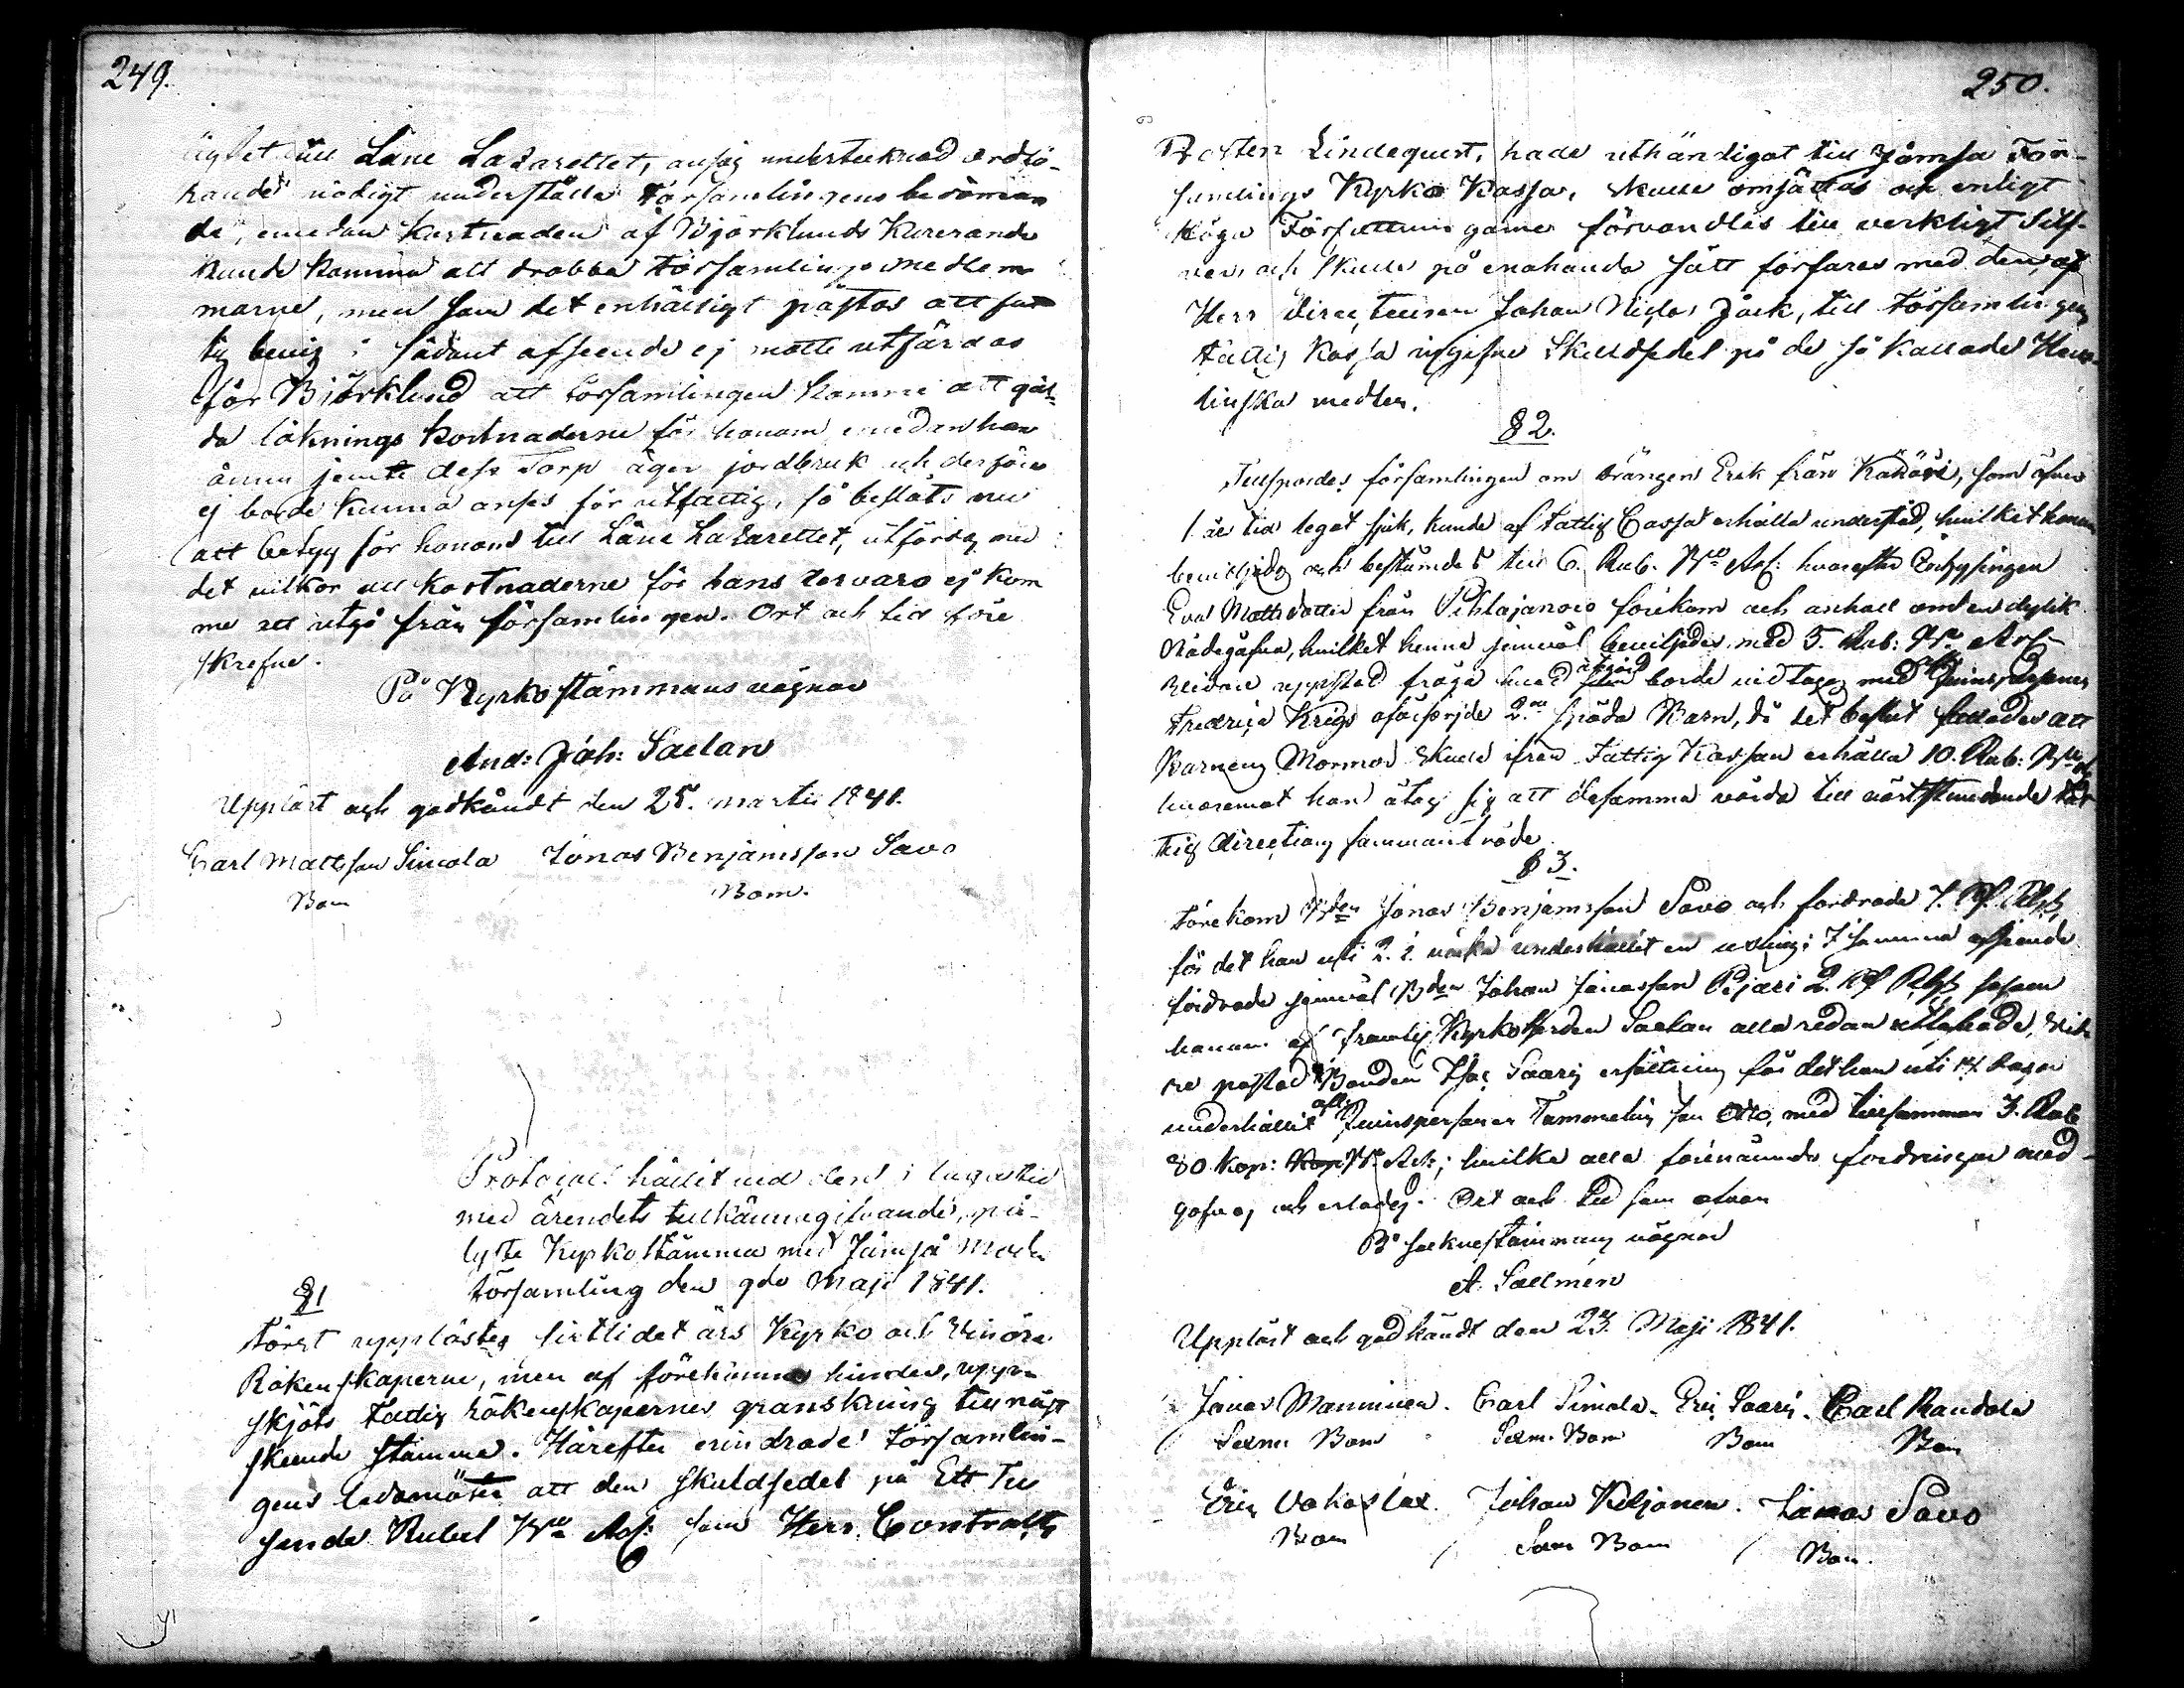 249.
till Läne Lazarettet, ansåg undertecknad ordfö-
rande nödigt underställa Församlingens bedöman
de, emedan kostnaden af Björklunds kurerande
kunde komma att drabba Församlings medlem
marne, men som det enhälligt påstods att fat
tig bevis i sådant afseende ej måtte utfärdas
för Björklund att församlingen komme att gäl-
da läknings kostnaderne för honom emedan han
ännu jemte dess Torp äger jordbruk och derföre
ej borde kunna anses för utfattig, så beslöts nu
att betyg för honom till Läne Lazarettet, utfärdas med
det vilkor att kostnaderne för hans dervaro ej kom
me att utgå från församlingen. Ort och tid före
skrefne.
På Kyrkostämmans vägnar
And: Joh: Saelan
Uppläst och godkändt den 25. martii 1841.
Carl Mattsson Simola Jonas Benjaminsson Savo
Bom Bom.
Protocoll hållit vid den i laga tid
med ärendets tillkännagifvande, på-
lyste Kyrkostämma med Jämsä Moder
församling den 9de Maji 1841.
§1
Först upplästes sistlidet års Kyrko och
Räkenskaperne, men af förekomna hinder, upp-
skjöts Fattig räkenskapernes granskning till näst
skeende stämma. Härefter erindrade Församlin-
gens Ledamöter att den skuldsedel på Ett Tu
sende Rubel B:co Ass: som Herr Contracts
250.
Prosten Lindequist, hade uthändigat till Jämsä För-
samlings Kyrko Kassa, skulle omsättas och enligt
Höga Författningarne förvandlas till verkligt Silf-
ver, och skulle på enahanda sätt förfaras med den, af
Herr Directeuren Johan Niclas Jack, till Församlingens
Fattig Kassa utgifne Skuldsedel på de så kallade
linska medlen.
§2.
Tillspordes församlingen om drängen Erik från , som öfver
1 år tid legat sjuk, kunde af Fattig Cassa erhålla understöd, hvilket honom
beviljades och bestämdes till 6. Rub. B:co Ass: hvarefter
Eva Mattsdotter från Pihlajanoro förekom och anhöll om en dylik
Nådegåfva, hvilket henne jemväl beviljades med 5. Rub: B:co Ass:
vidare uppstod fråga hvad åtgärd borde vidtagas med
Fredrica Krigs oförsörjde 2:ne späda Barn, då det beslut fattades att
Barnens Mormor skulle ifrån Fattig Kassan erhålla 10. Rub: B:co
hvaremot hon åtog sig att desamma vårda till nästkommande Fat
tig Directions sammanträde.
§ 3.
Förekom B:den Jonas Benjaminsson Savo och fordrade
för det han uti 2. i veckor underhållit en ; I samma afseende
fordrade jemväl B:den Johan Jonasson Pijari 2. såsom
honom af framledne Kyrkoherden Saelan allaredan utlofvade,
re påstod Bonden Isac Saari ersättning för det han uti 14 dagar
underhållit afl: Qvinspersonen son Otto, med tillsamman 3. Rub
80 Kop: B:co Ass; hvilka alla förenämnde fordringar med
gafvos och erlades. Ort och tid som ofvan
På Sockenstämmans vägnar
A. Sallmén
Uppläst och godkändt den 23. Maji 1841.
Jonas Manninen. Carl Simola. Eric Saari. Carl Raudala
Sexm Bom Sexm. Bom Bom Bom
Eric Johan Kiljanen. Jonas Savo
Bom Sexm Bom Bom.